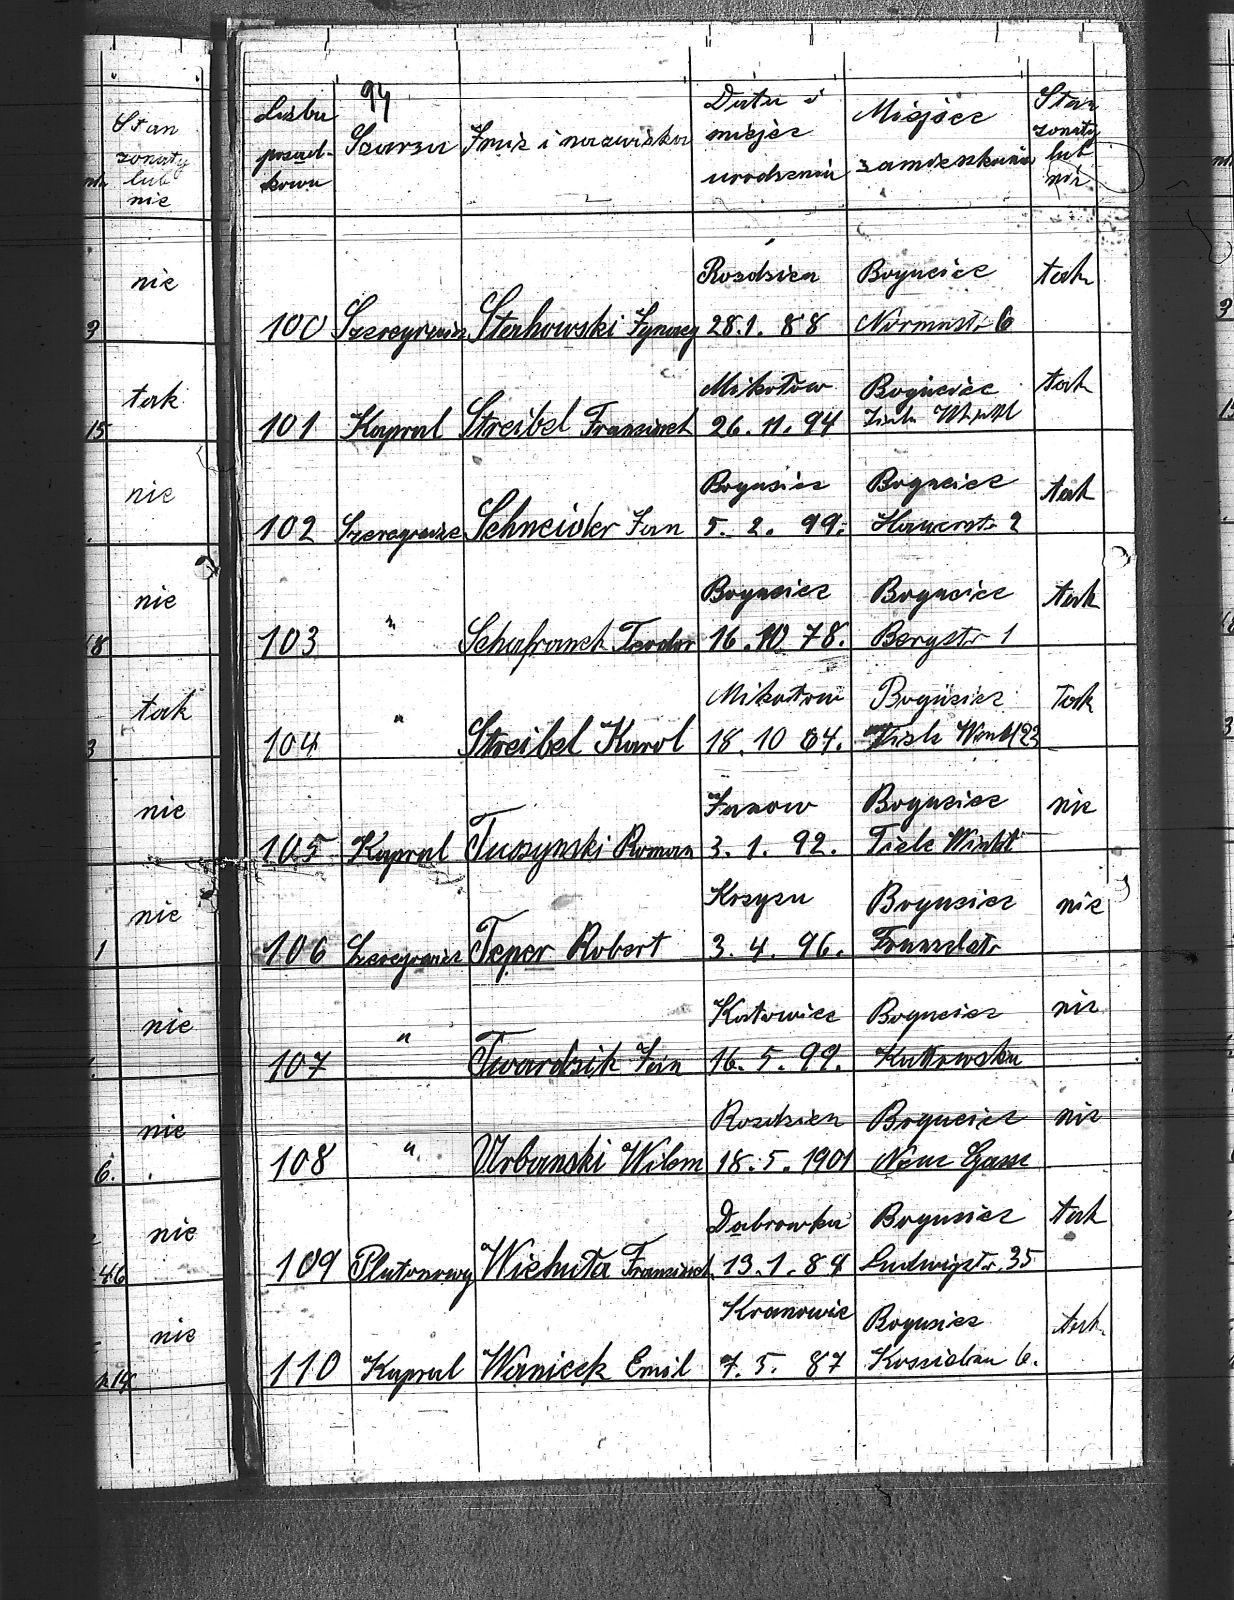 Stan
zonaty
lub
nie
nie
9
tak
15
nie
nie
18
tak
3
nie
nie
1
nie
nie
6.
nie
46
nie
94
Liszba porząd- kowa
Szarza
Imie i nazwisko
Data i miejsc urodzenia
Miejsce zamieszkania
Stan zonaty lub nie
Rozdzien Bogucice tak
100 Szeregowiec Stachowski Ignacy 28.1.88 Normastr 6
Mikołow Bogucice tak
101 Kapral Streibel Franciszek 26.11.94
Bogucice Bogucice tak
102 Szeregowiec Schneider Jan 5.2.99. Hauerstr 2
Bogucice Bogucice tak
103 " Schafranek Teodor 16.10 78. Bergstr 1
Mikołow Bogucice Tak
104 " Streibel Karol 18.10 64.
Janow Bogucice nie
105 Kapral Tuszynski Roman 3.1.92. Tiele Winkl
Bogucice nie
106 Szeregowiec Teper Robert 3.4.96.
Katowice Bogucice nie
107 " Twardzik Jan 16.5.99. Kattowska
Rozdzien Bogucice nie
108 " Urbanski Wilem 18.5.1901 Neue Gasse
Dabrowka Bogucice tak
109 Plutonowy Wichuta Franciszek 13.1.88 Ludwigstr. 35
Kranowic Bogucice tak
110 Kapral Wanicek Emil 7.5.87 6.